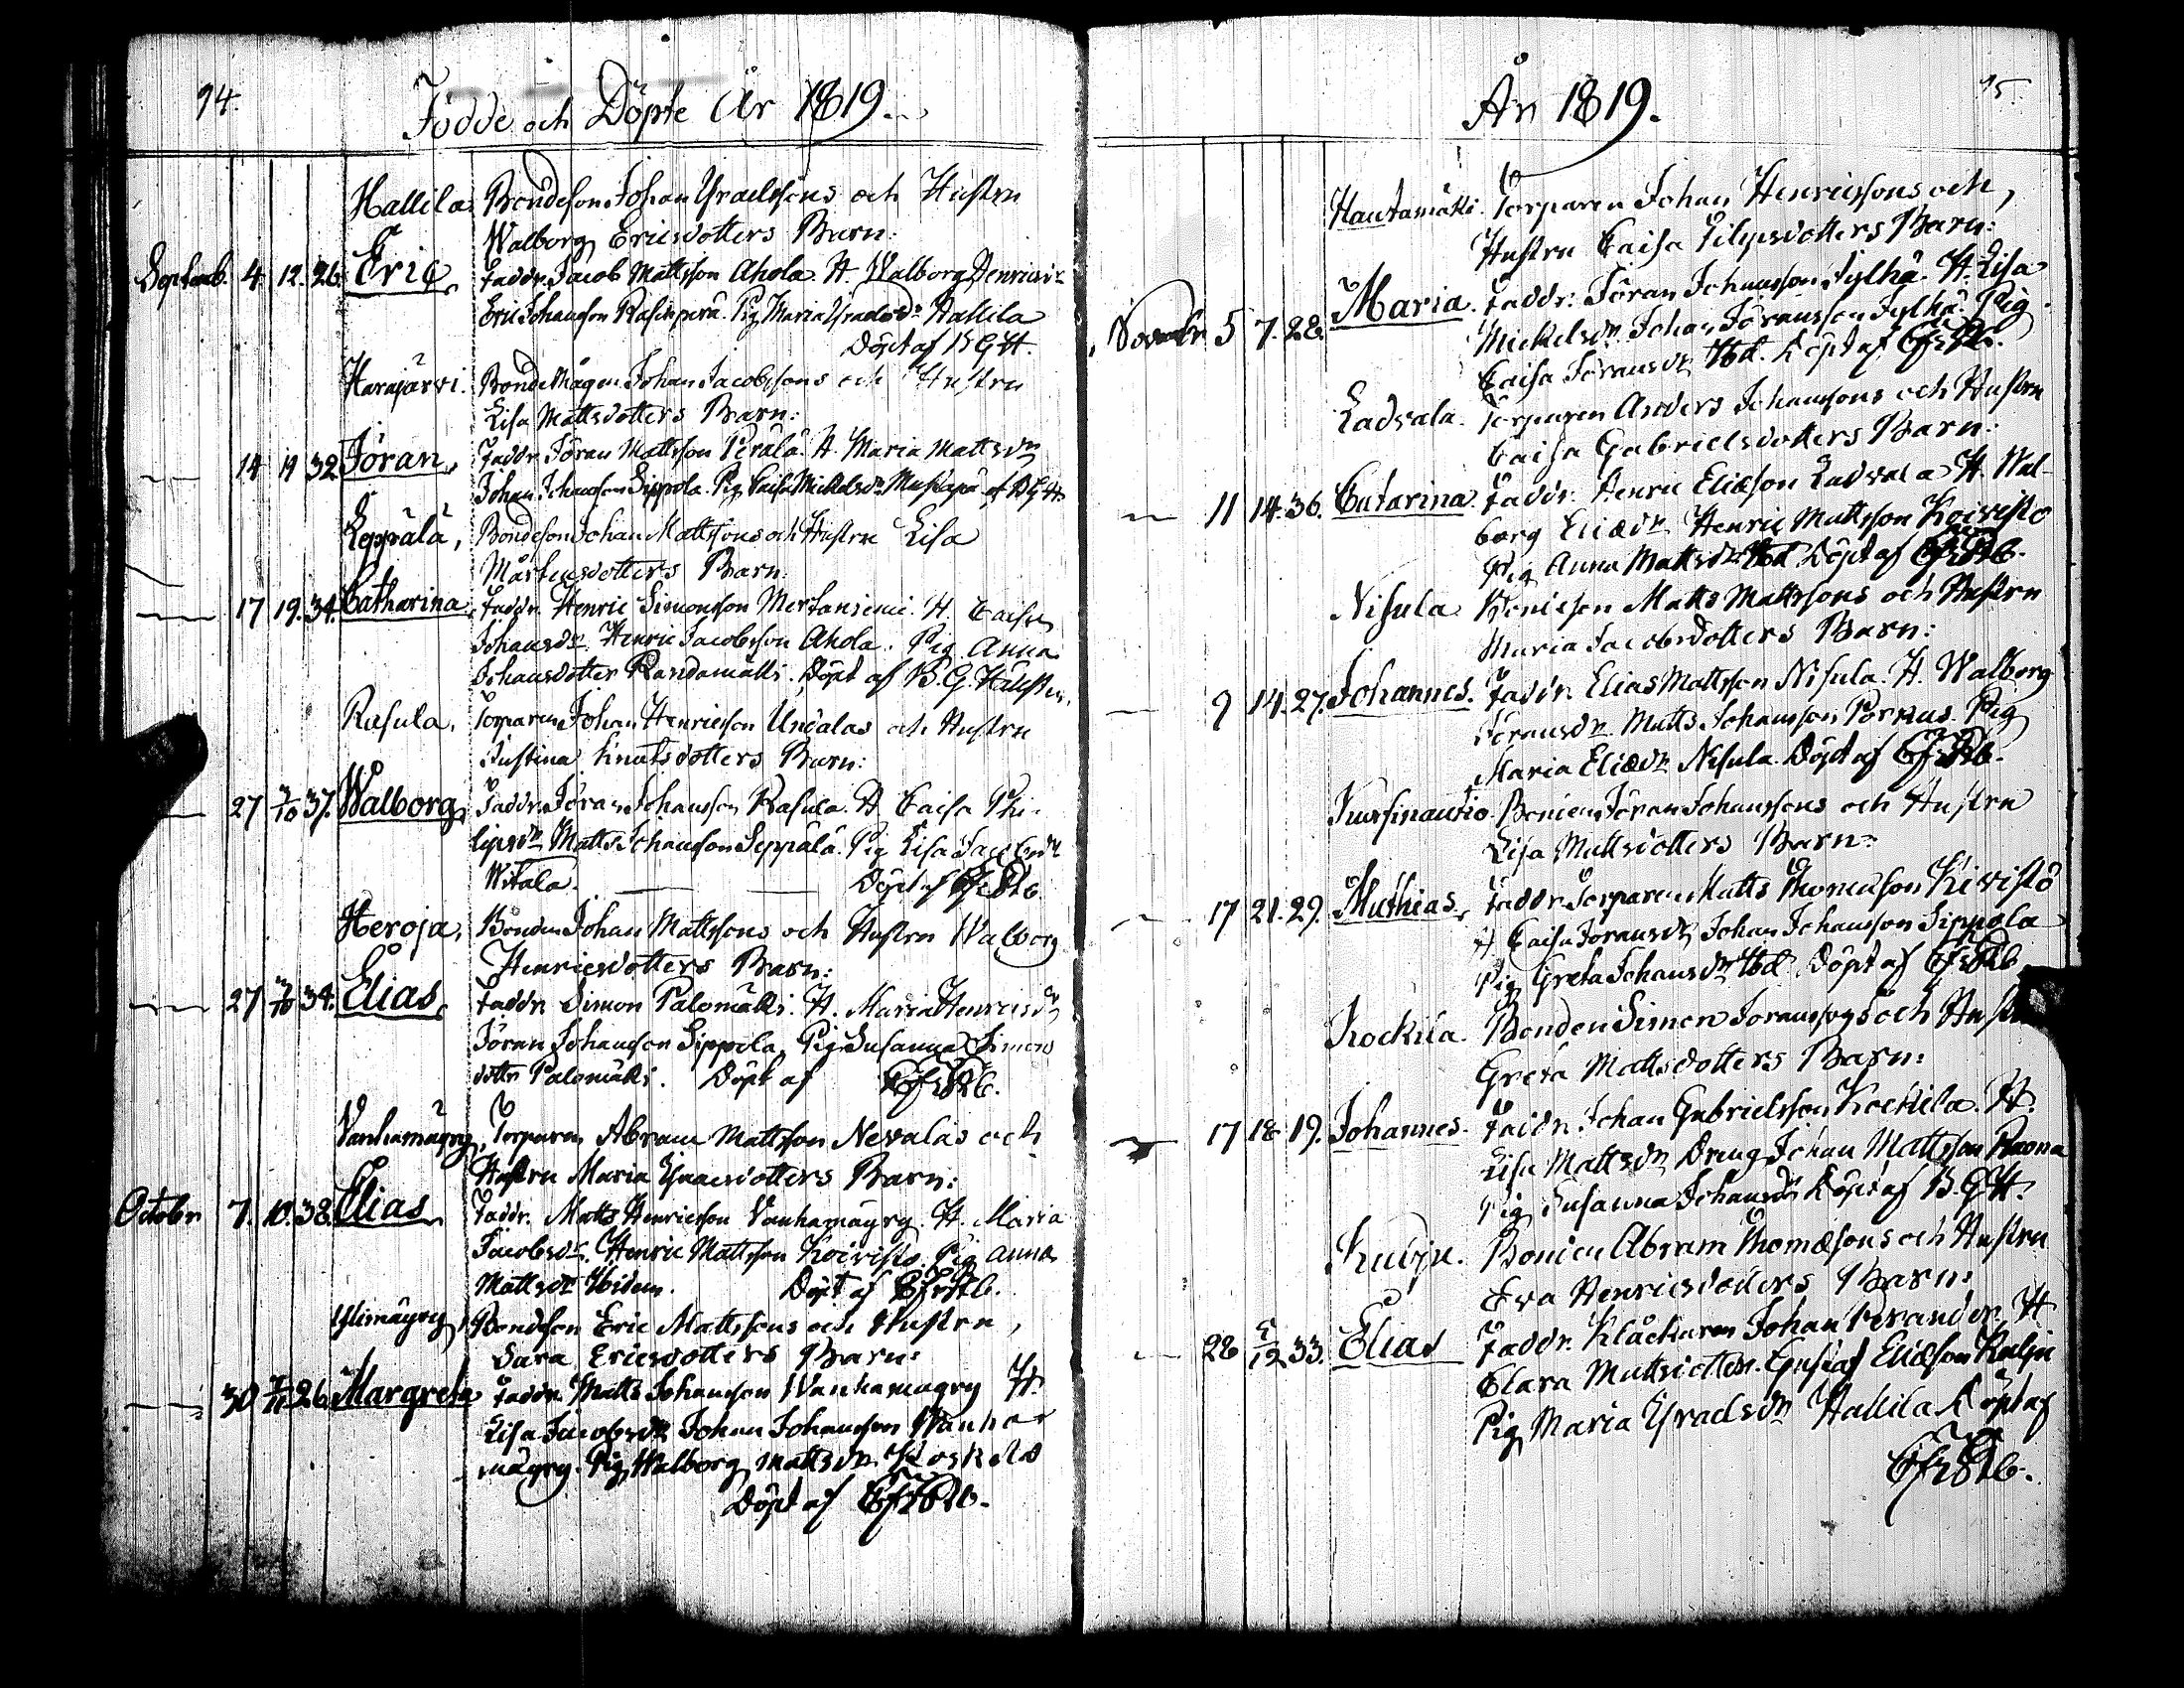 94.
Födde och Döpte År 1819.
Hallila Bondeson Johan Ysraelssons och Hustru
Walborg Ericsdotters Barn:
Septemb. 4. 12. 26. Eric, Faddr. Jacob Mattsson Ahola. H. Walborg Henricsdr
Eric Johansson Pig. Maria Ysraelsdr Hallila
Döpt af B G H.
Harajärvi. Bondemågen Johan Jacobssons och Hustru
Lisa Mattsdotters Barn:
14 19 32 Jöran, Faddr. Jöran Mattsson Perälä. H. Maria Mattsdr
Johan Johansson Sippola. Pig. Caisa Mickelsdr Mustapä af B G H
Leppälä, Bondeson Johan Mattssons och Hustru Lisa
Mårtensdotters Barn:
17 19. 34. Catharina, Faddr. Henric Simonsson Mertaniemi. H. Caisa
Johansdr. Henric Jacobsson Ahola. Pig. Anna
Johansdotter Randamäki. Döpt af B. G.
Rasula, Torparen Johan Henricsson Undalas och Hustru
Justina Knutsdotters Barn:
27 3/10 37. Walborg, Faddr. Jöran Johansson Rasula. H. Caisa Phi-
lipsdr Matts Johansson Seppälä. Pig. Lisa Jacobsdr
Witala. Döpt af
Heroja, Bonden Johan Mattssons och Hustru Walborg
Henricsdotters Barn:
27 3/10 34. Elias, Faddr. Simon Palomäki. H. Maria Henricsdr
Jöran Johansson Sippola. Pig. Susanna Simons
dotter Palomäki. Döpt af
Vanhamäyry, Torparen Abram Mattsson Nevalas och
Hustru Maria Ysaacsdotters Barn:
October 7. 10. 38. Elias Faddr. Matts Henricsson Vanhamäyry. H. Maria
Jacobsdr. Henric Mattsson Koivisto. Pig. Anna
Mattsdr Ibidem. Döpt af
Ylimäyry, Bondeson Eric Mattssons och Hustru,
Sara Ericsdotters Barn:
30 26. Margreta Faddr. Matts Johansson Wanhamäyry H.
Lisa Jacobsdr Johan Johansson Wanha
mäyry. Pig. Walborg Mattsdr. Koskela
Döpt af
95.
År 1819.
Hautamäki. Torparen Johan Henricssons och,
Hustru Caisa Filipsdotters Barn:
November 5 7. 28. Maria. Faddr. Jöran Johansson Jylhä. H. Lisa
Mickelsdr. Johan Jöransson Jylhä. Pig.
Caisa Jöransdr Ibd. Döpt af
Ladvala. Torparen Anders Johanssons och Hustru
Caisa Gabrielsdotters Barn:
11 14. 36. Catarina. Faddr. Henric Eliæson Ladvala H. Wal-
borg Eliædr. Henric Mattsson Koivisto
Pig. Anna Mattsdr Ibd. Döpt af
Nisula Bondeson Matts Mattssons och Hustru
Maria Jacobsdotters Barn:
9 14. 27. Johannes. Faddr. Elias Mattsson Nisula. H. Walborg
Jöransdr. Matts Johansson Porkus. Pig
Maria Eliædr Nisula. Döpt af
Kursinautio. Bonden Jöran Johanssons och Hustru
Lisa Mattsdotters Barn:
17 21. 29. Mathias, Faddr. Torparen Matts Thomasson Kivistö
H Caisa Jöransdr Johan Johansson Sippola
Pig. Greta Johansdr Ibd. Döpt af
Kockila. Bonden Simon Joranssons och
Greta Mattsdotters Barn:
17 18 19. Johannes. Faddr. Johan Gabrielsson Kockila. H.
Lisa Mattsdr Dräng Johan Mattsson
Pig. Susanna Johansdr Döpt af B. G H.
Kulju. Bonden Abram Thomæsons och Hustru
Eva Henricsdotters Barn:
28 5/12 33. Elias Faddr. Klåckaren Johan Perander. H
Clara Mattsdotter. Gustaf Eliæson Kulju
Pig. Maria Ysraelsdr Hallila Döpt af